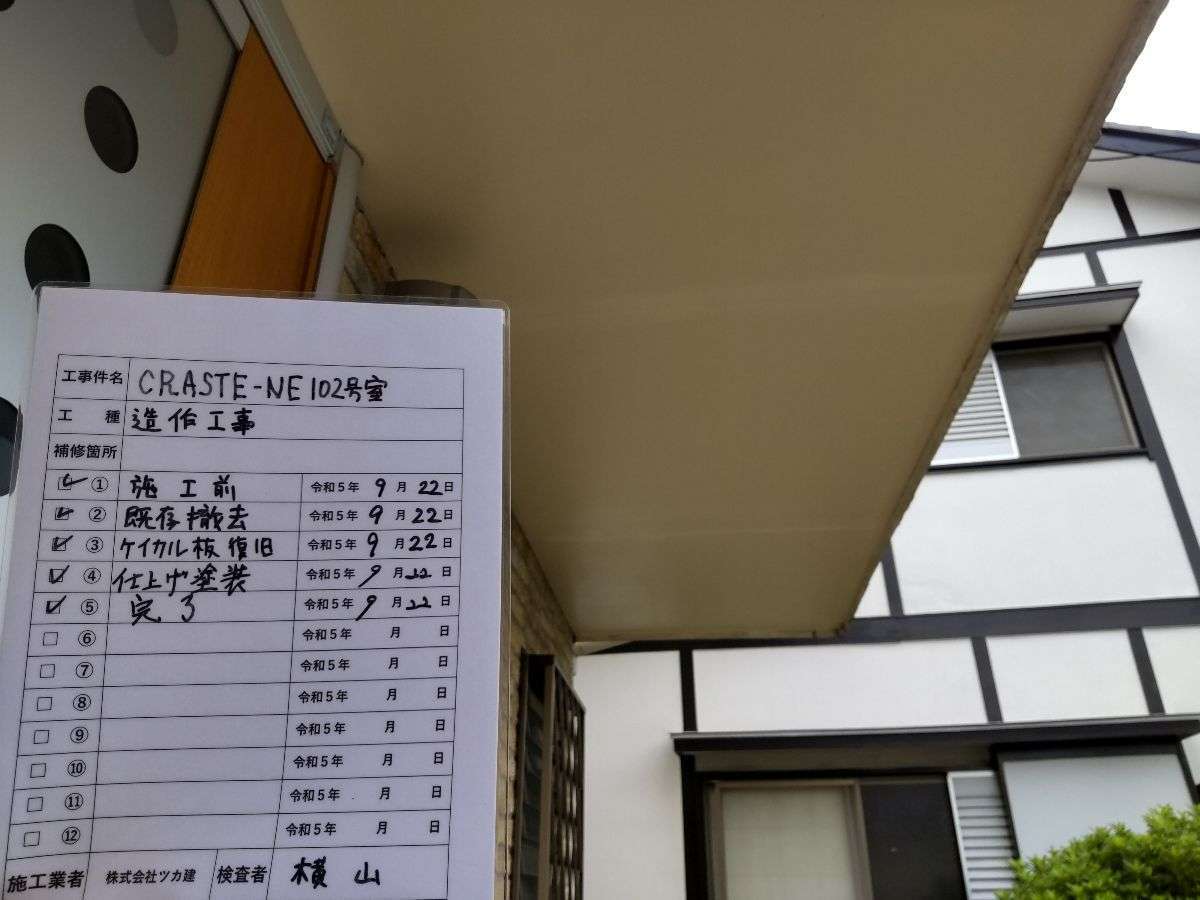 工事件名 CRASTE-NE102号室
工種 造作工事
補修箇所
① 施工前 令和5年 9月 22日
② 既存撤去 令和5年 9月 22日
③ ケイカル板復旧 令和5年 9月 22日
④ 仕上げ塗装 令和5年 9月 22日
⑤ 完了 令和5年 9月 22日
⑥ 令和5年 月 日
⑦ 令和5年 月 日
⑧ 令和5年 月 日
⑨ 令和5年 月 日
⑩ 令和5年 月 日
⑪ 令和5年 月 日
⑫ 令和5年 月 日
施工業者 株式会社ツカ建 検査者 横山